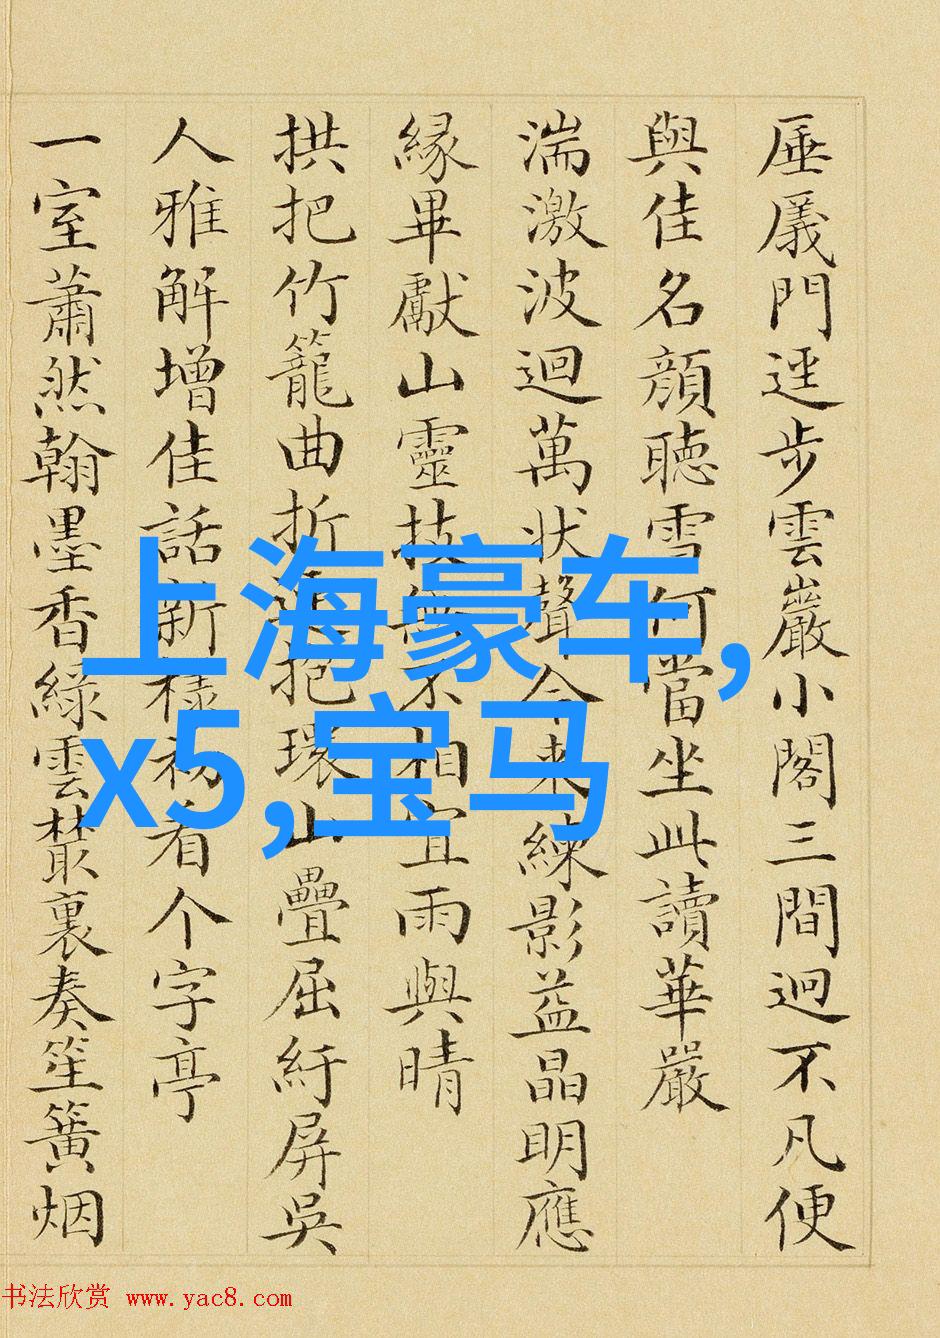 厜㕒門逕步雲巖小閣三間迥不凡便
與佳名顔聽雪何當坐此讀華嚴
湍激波迴萬狀聲今來練影益晶明應
緣畢獻山靈技無不相宜雨與晴
拱把竹籠曲折抱環山疊屈紆屏吳
人雅解增佳話新樣初看个字亭
一室蕭然翰墨香綠雲叢裏奏笙簧烟
上海豪车,
x5,宝马
书法欣赏 www.yac8.com